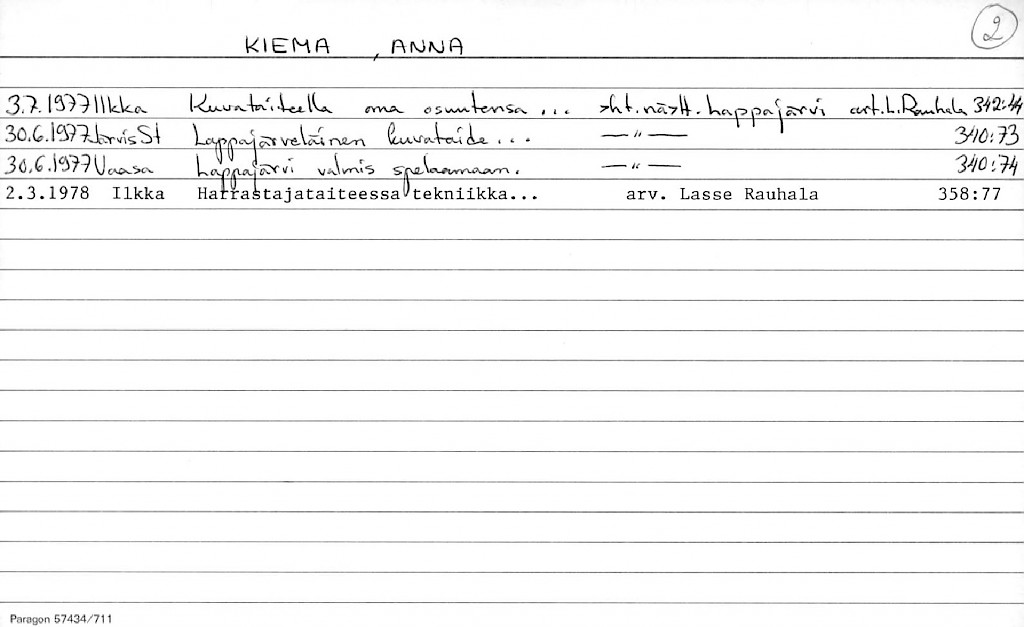 2
KIEMA , ANNA
3.7.1977 Ilkka Kuvataiteella oma osuutensa ... yht.näytt. Lappajärvi art. L. Rauhala 342:44
30.6.1977 JärviSt Lappajärveläinen kuvataide... —"— 340:73
30.6.1977 Vaasa Lappajärvi valmis spelaamaan. —"— 340:74
2.3.1978 Ilkka Harrastajataiteessa tekniikka... arv. Lasse Rauhala 358:77
Paragon 57434/711